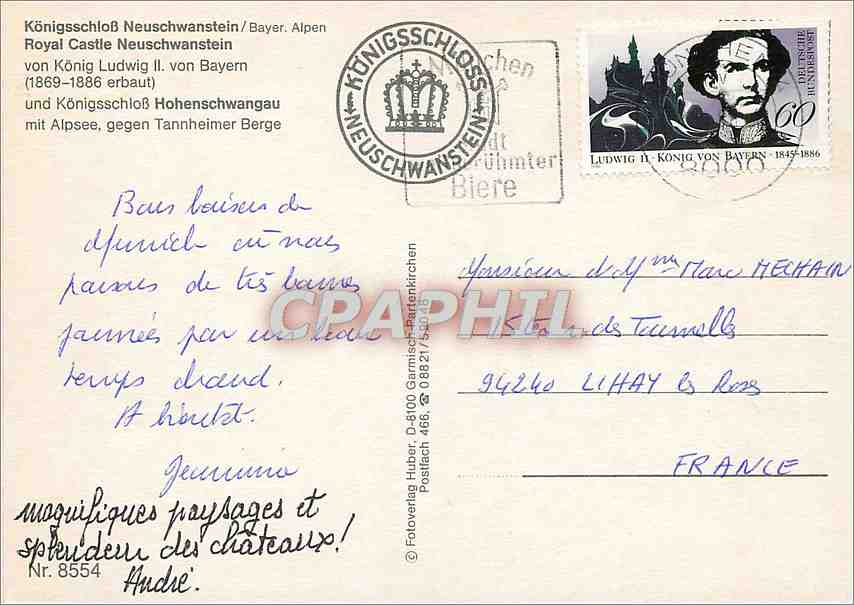 Königsschloß Neuschwanstein/Bayer. Alpen
Royal Castle Neuschwanstein
von König Ludwig II. von Bayern
(1869–1886 erbaut)
und Königsschloß Hohenschwangau
mit Alpsee, gegen Tannheimer Berge
KÖNIGSSCHLOSS
NEUSCHWANSTEIN
München
Biere
DEUTSCHE
BUNDESPOST
60
LUDWIG II · KÖNIG VON BAYERN · 1845–1886
Bons baisers de
Munich où nous
passons de très bonnes
journées par un beau
temps chaud.
A bientôt.
magnifiques paysages et
splendeur des châteaux!
André.
Nr. 8554
© Fotoverlag Huber, D-8100 Garmisch-Partenkirchen
Postfach 466, ☎ 08821/
CPAPHIL
Monsieur et Mme Marc MECHAIN
des Tournelles
94240 LIHAY les Roses
FRANCE